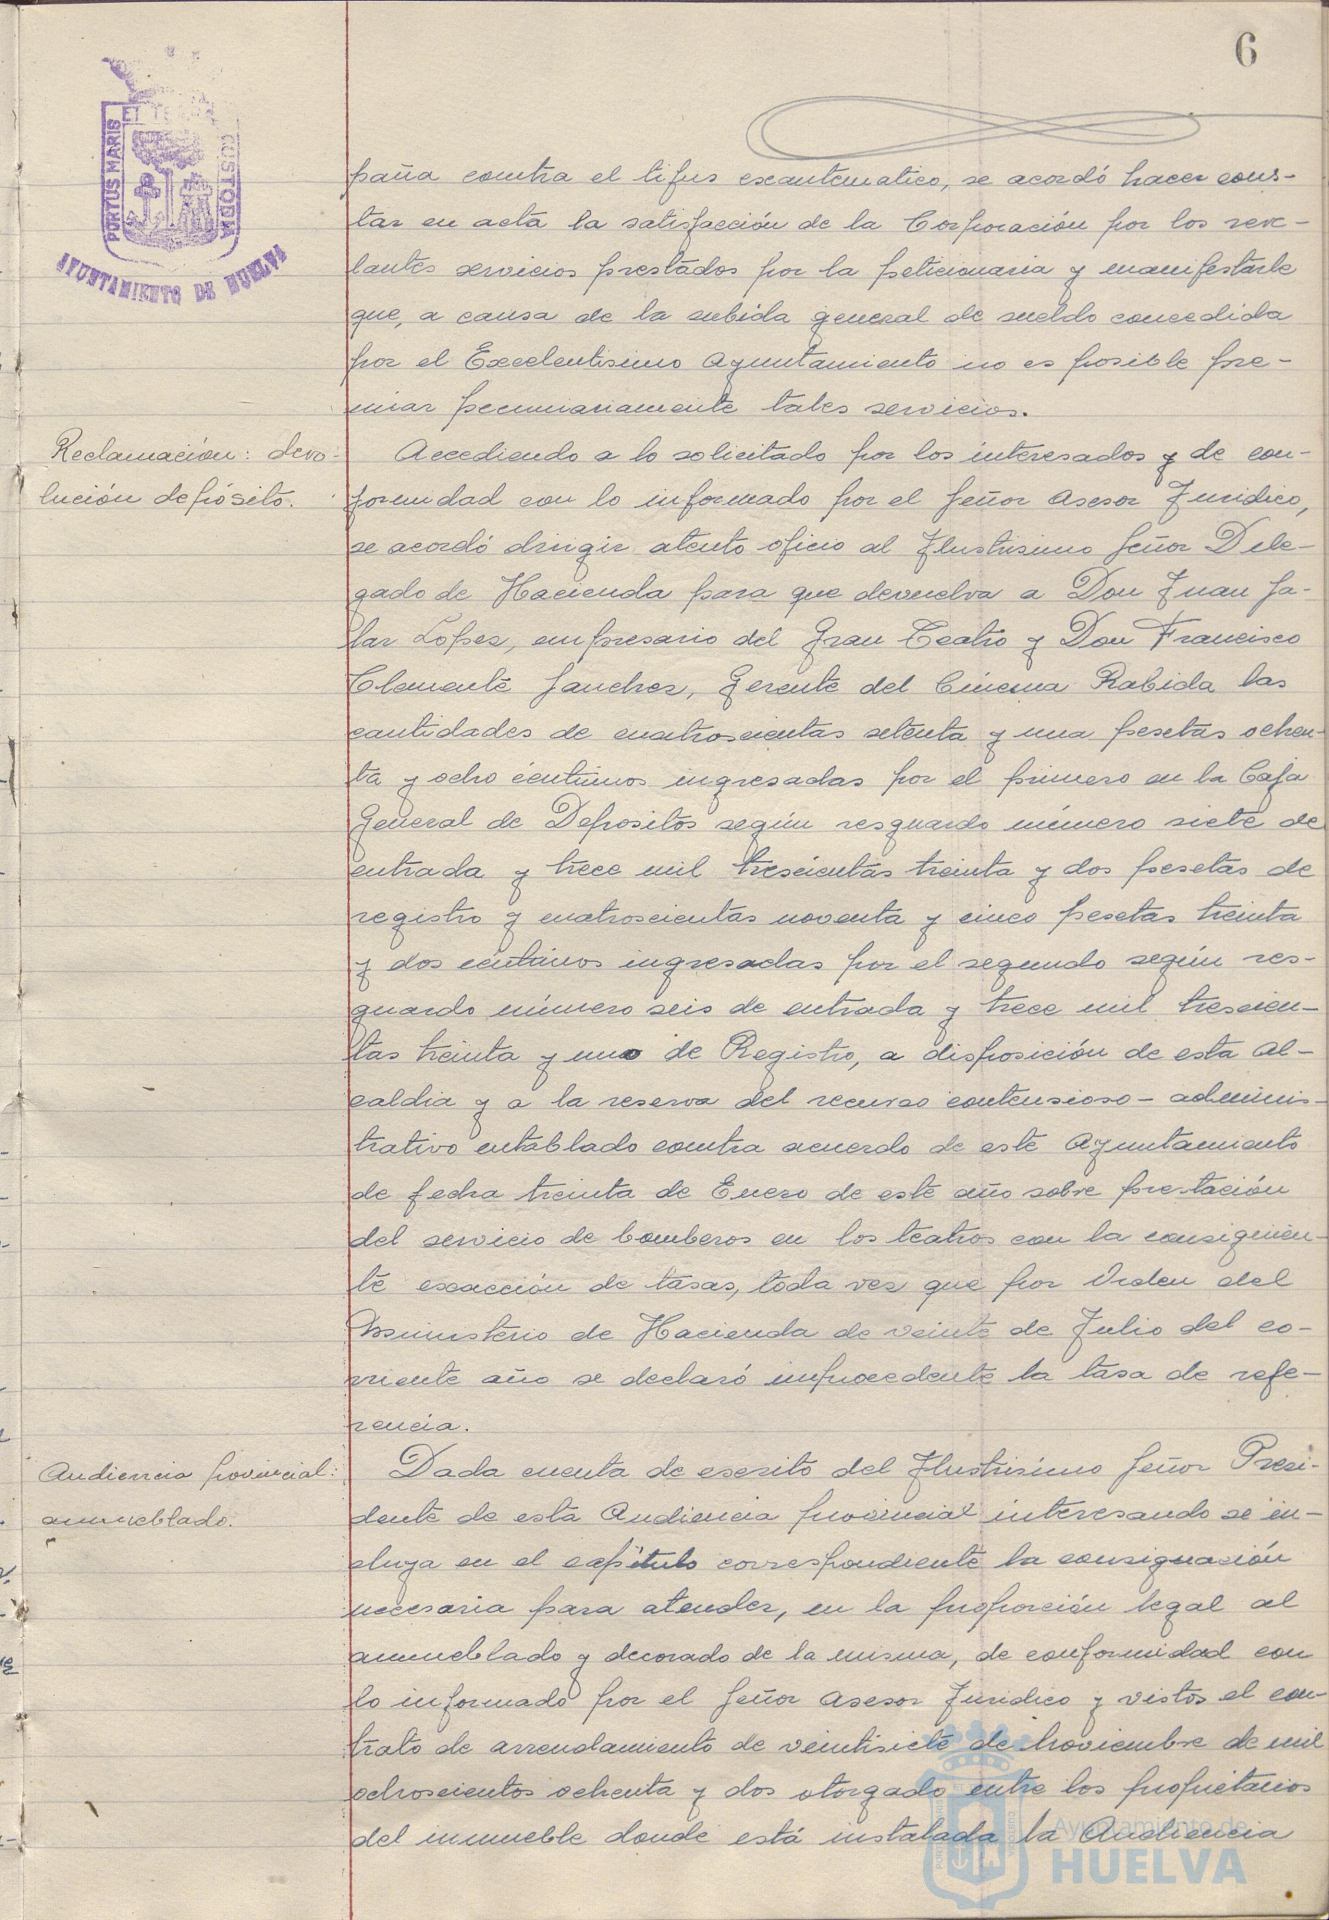 6
PORTUS MARIS ET TERRAE CUSTODIA
AYUNTAMIENTO DE HUELVA
paña contra el tifus exantematico, se acordó hacer cons-
tar en acta la satisfacción de la Corporación por los reve-
lantes servicios prestados por la peticionaria y manifestarle
que, a causa de la subida general de sueldo concedida
por el Excelentisimo Ayuntamiento no es posible pre-
miar pecuniariamente tales servicios.
Reclamación: devo-
lución depósito.
Accediendo a lo solicitado por los interesados y de con-
formidad con lo informado por el Señor Asesor Juridico,
se acordó dirigir atento oficio al Ilustrisimo Señor Dele-
gado de Hacienda para que devuelva a Don Juan Ja-
lar Lopez, empresario del Gran Teatro y Don Francisco
Clemente Sanchez, Gerente del Cinema Rabida las
cantidades de cuatroscientas setenta y una pesetas ochen-
ta y ocho céntimos ingresadas por el primero en la Caja
General de Depositos según resguardo número siete de
entrada y trece mil trescientas treinta y dos pesetas de
registro y cuatroscientas noventa y cinco pesetas treinta
y dos céntimos ingresadas por el segundo según res-
guardo número seis de entrada y trece mil trescien-
tas treinta y uno de Registro, a disposición de esta Al-
caldia y a la reserva del recurso contensioso-adminis-
trativo entablado contra acuerdo de este Ayuntamiento
de fecha treinta de Enero de este año sobre prestación
del servicio de bomberos en los teatros con la consiguien-
te exacción de tasas, toda vez que por Orden del
Ministerio de Hacienda de veinte de Julio del co-
rriente año se declaró improcedente la tasa de refe-
rencia.
Audiencia provincial:
amueblado.
Dada cuenta de escrito del Ilustrisimo Señor Presi-
dente de esta Audiencia provincial interesando se in-
cluya en el capítulo correspondiente la consignación
necesaria para atender, en la proporción legal al
amueblado y decorado de la misma, de conformidad con
lo informado por el Señor Asesor Juridico y vistos el con-
trato de arrendamiento de veintisiete de Noviembre de mil
ochoscientos ochenta y dos otorgado entre los propietarios
del inmueble donde está instalada la Audiencia
Ayuntamiento de
HUELVA